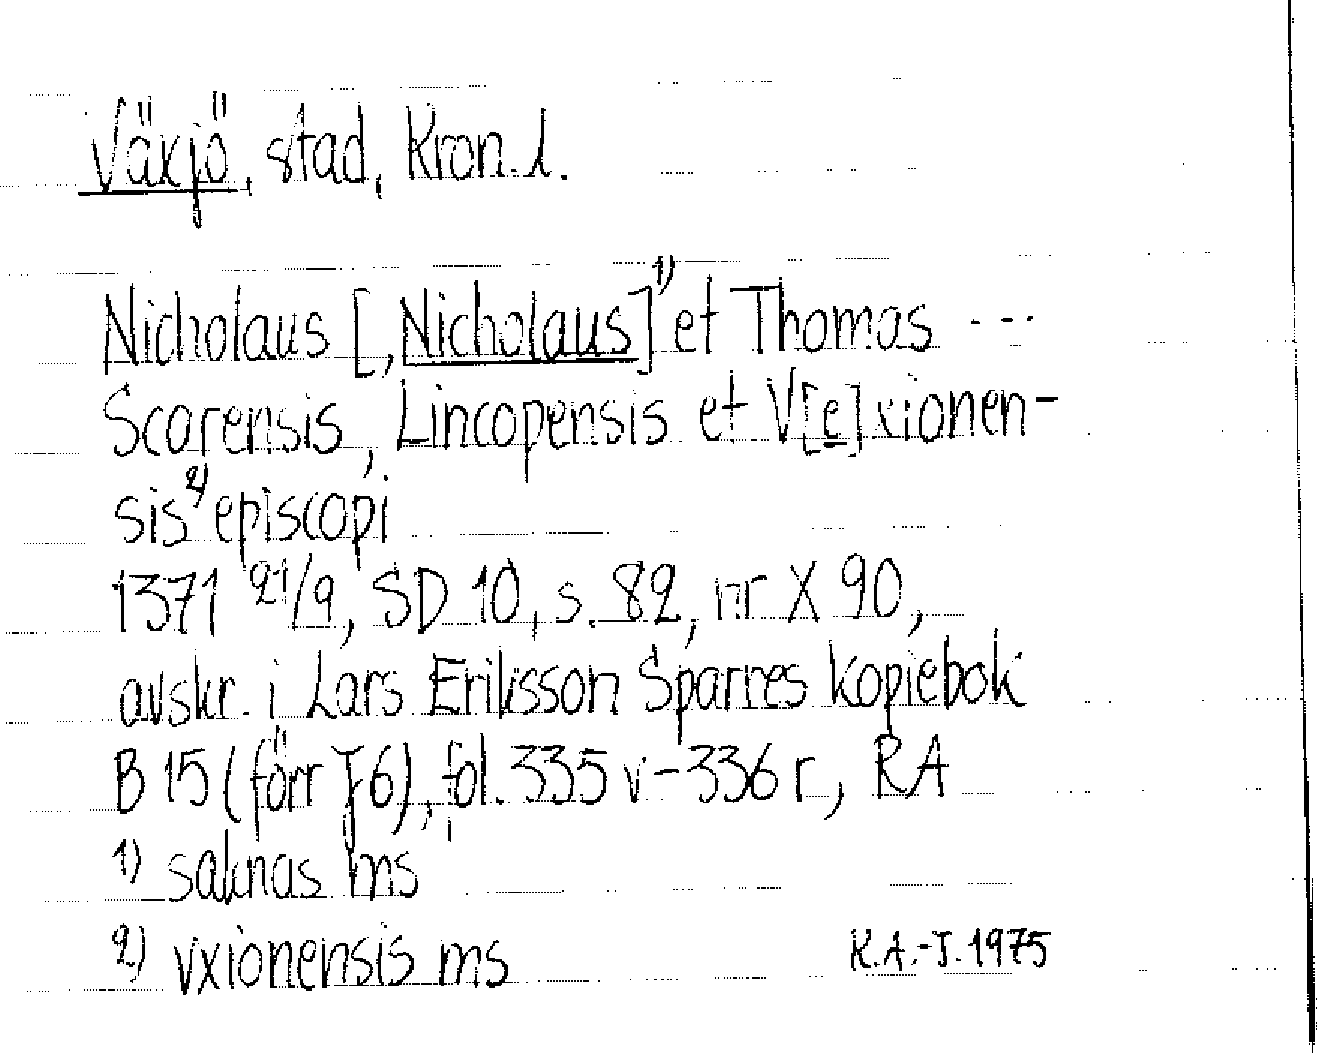 Växjö, stad, Kron. l.
Nicholaus [, Nicholaus]¹⁾ et Thomas ---
Scarensis, Lincopensis et V[e]xionen-
sis²⁾ episcopi
1371 21/9, SD 10, s. 82, nr X 90,
avskr. i Lars Eriksson Sparres kopiebok
B 15 (förr J 6), fol. 335 v-336 r, RA
1) saknas ms
2) vxionensis ms
K.A.-J. 1975